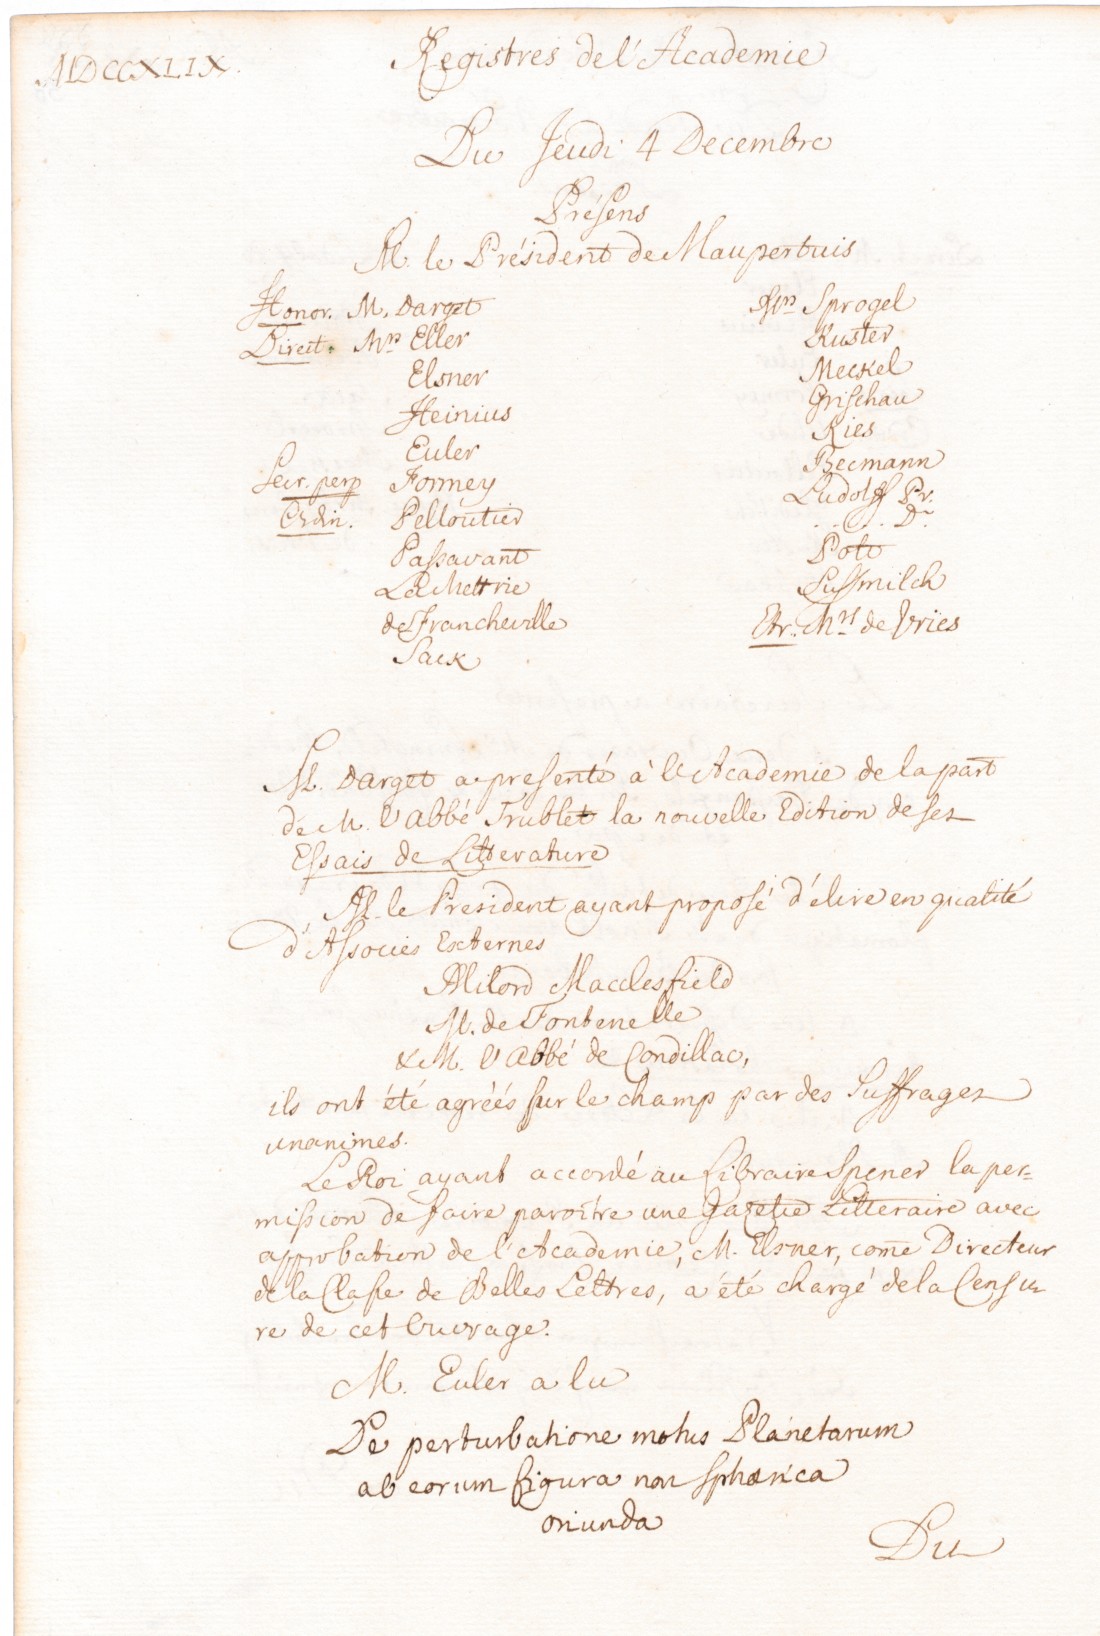 MDCCXLIX.
Registres de l'Academie
Du Jeudi 4 Decembre
Présens
M. le Président de Maupertuis
Honor. M. Darget
Direct. Mrs Eller
Elsner
Heinius
Euler
Secr. perp Formey
Ordin. Pelloutier
Passavant
La Mettrie
de Francheville
Sack
Mrs Sprogel
Kuster
Meckel
Grischau
Kies
Becmann
Ludolff Pr.
. . . . Dr
Pott
Sussmilch
Etr. Mrs de Vriës
M. Darget a presenté à l'Academie de la part
de M. l'Abbé Trublet la nouvelle Edition de ses
Essais de Litterature
M. le President ayant proposé d'élire en qualité
d'Associés Externes
Milord Macclesfield
M. de Fontenelle
& M. l'Abbé de Condillac,
ils ont été agréés sur le champ par des Suffrages
unanimes.
Le Roi ayant accordé au Libraire Spener la per=
mission de faire paroitre une Gazette Litteraire avec
approbation de l'Academie, M. Elsner, come Directeur
de la Classe de Belles Lettres, a été chargé de la Censu-
re de cet Ouvrage.
M. Euler a lu
De perturbatione motus Planetarum
ab eorum figura non sphærica
oriunda
Du